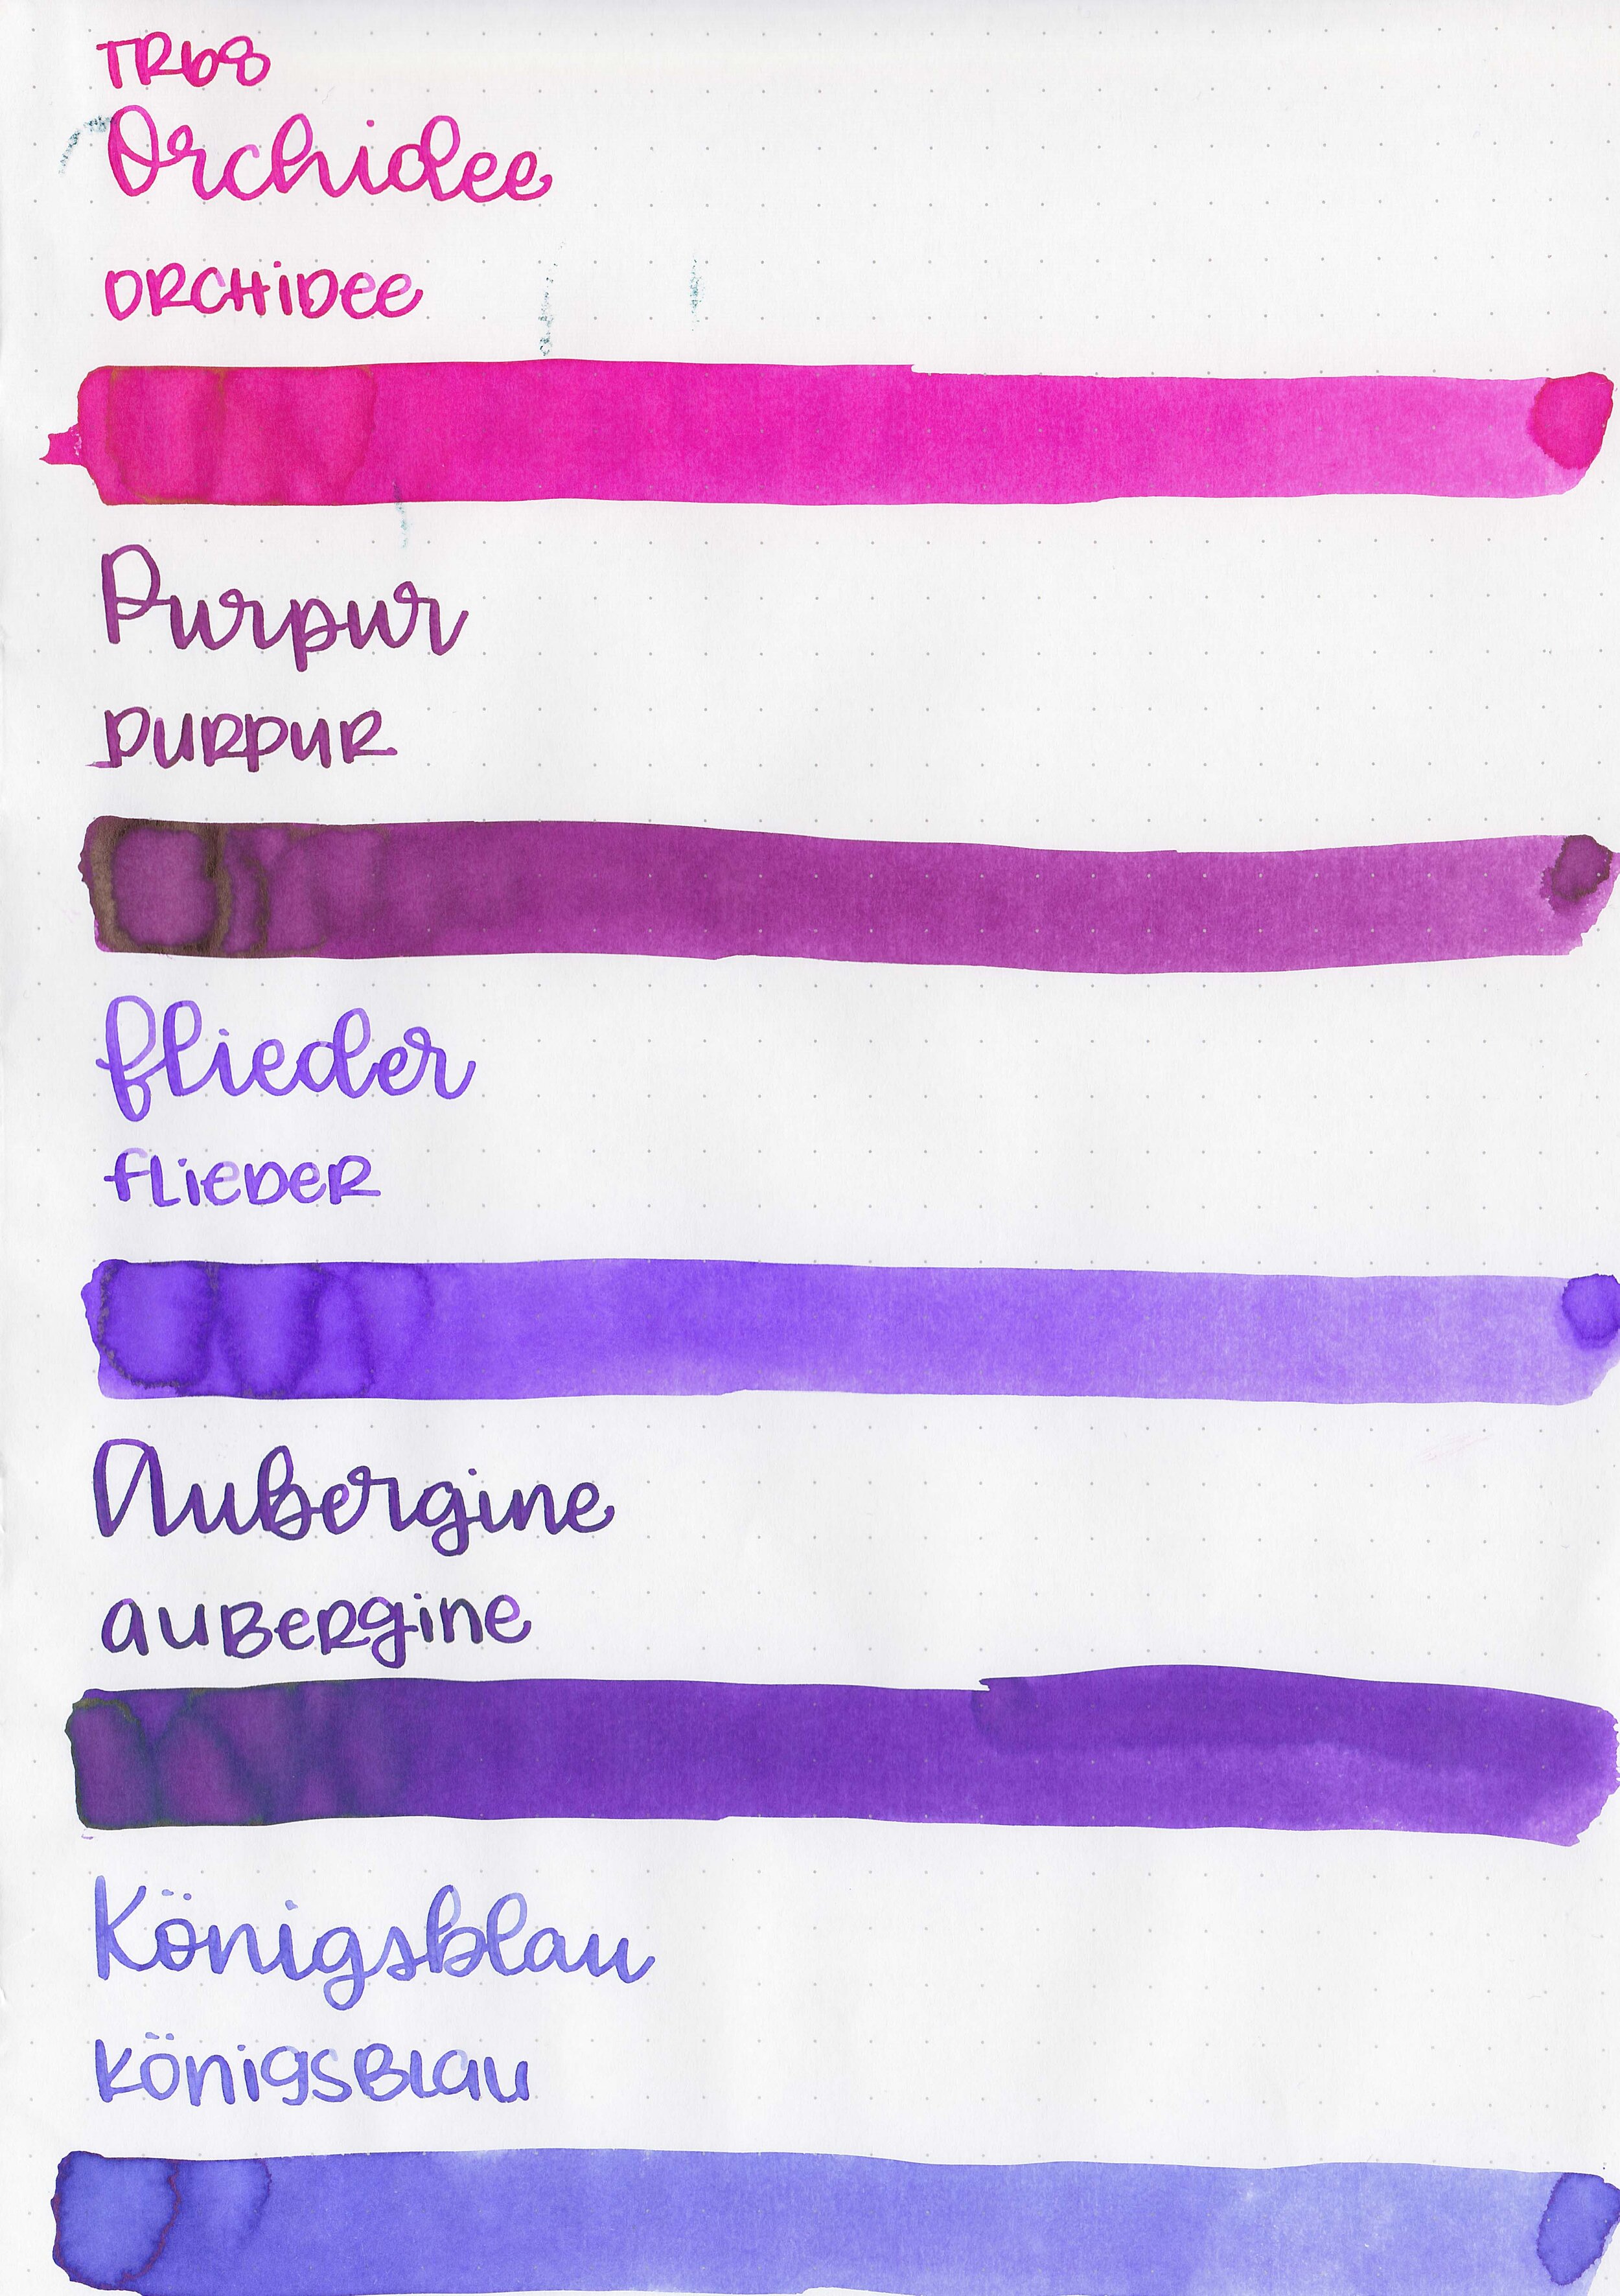 TR68
Orchidee
ORCHiDee
Purpur
PURPUR
flieder
fLieDeR
Aubergine
auBeRgine
Königsblau
KönigsBlau